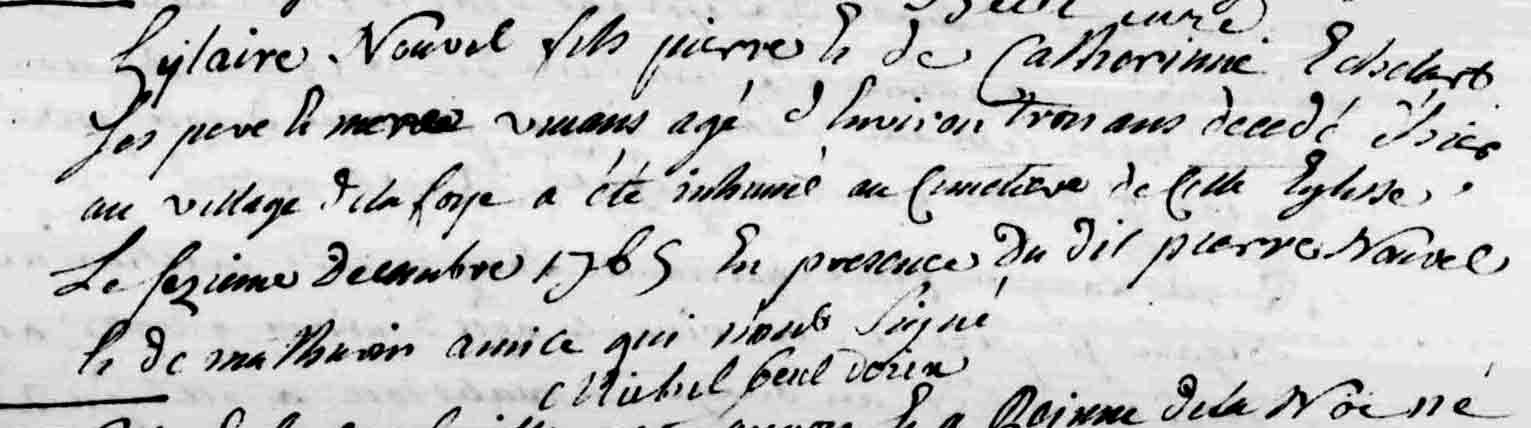 curé
hylaire Nouvel fils pierre & de Catherinne Echelard
ses pere & mere vivans agé d'Environ trois ans decedé d'hier
au village de la forge a été inhumé au Cimetiere de Cette Eglisse
Le sezieme decembre 1765 En presence du dit pierre Nouvel
& de mathurin amice qui n'ont signé
Michel
Reinne de la Noe né